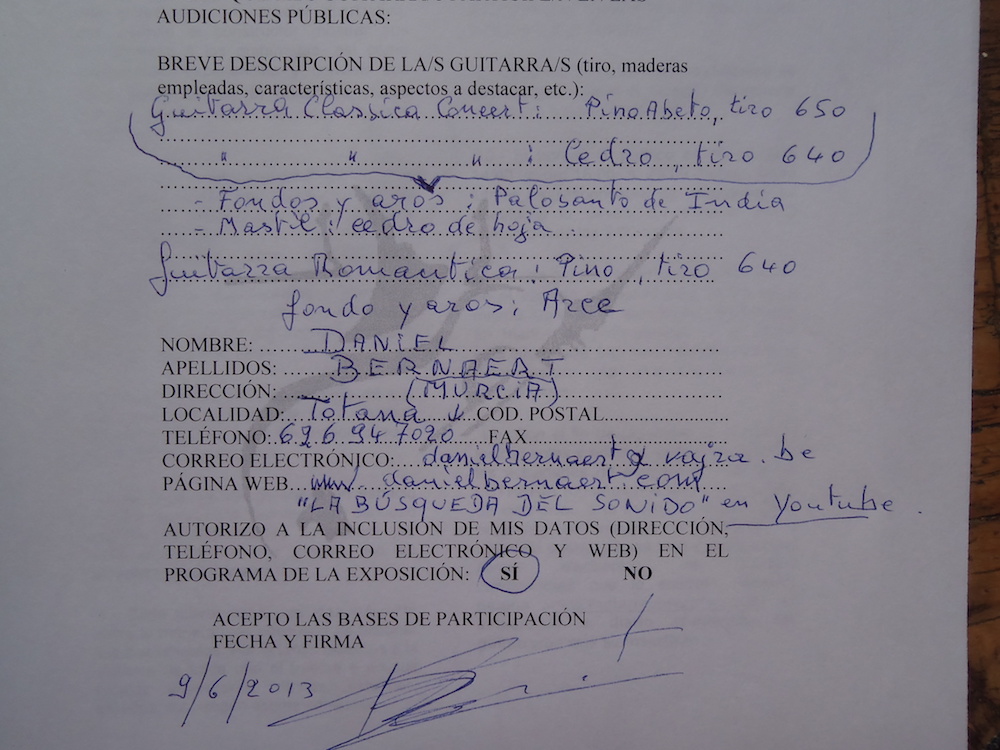 AUDICIONES PÚBLICAS:
BREVE DESCRIPCIÓN DE LA/S GUITARRA/S (tiro, maderas
empleadas, características, aspectos a destacar, etc.):
Guitarra Classica Concert: Pino Abeto, tiro 650
" " " : Cedro, tiro 640
- Fondos y aros: Palosanto de India
- Mastil: cedro de hoja
Guitarra Romantica: Pino, tiro 640
fondo y aros: Arce
NOMBRE: DANIEL
APELLIDOS: BERNAERT
DIRECCIÓN: (MURCIA)
LOCALIDAD: Totana COD. POSTAL
TELÉFONO: 626 947020 FAX
CORREO ELECTRÓNICO: danielbernaert@vajra.be
PÁGINA WEB www.danielbernaert.com
"LA BÚSQUEDA DEL SONIDO" en Youtube.
AUTORIZO A LA INCLUSIÓN DE MIS DATOS (DIRECCIÓN,
TELÉFONO, CORREO ELECTRÓNICO Y WEB) EN EL
PROGRAMA DE LA EXPOSICIÓN: SÍ NO
ACEPTO LAS BASES DE PARTICIPACIÓN
FECHA Y FIRMA
9/6/2013